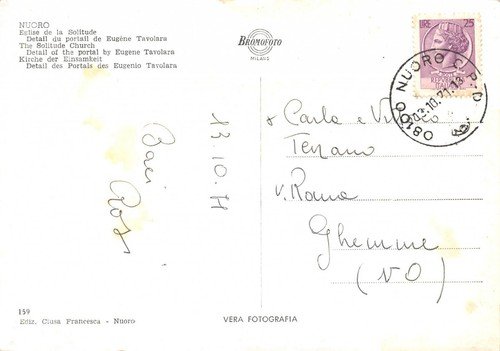 NUORO
Eglise de la Solitude
Detail du portail de Eugène Tavolara
The Solitude Church
Detail of the portal by Eugène Tavolara
Kirche der Einsamkeit
Detail des Portals des Eugenio Tavolara
BROMOFOTO
MILANO
LIRE 25
08100 NUORO C.P.D
13.10.71
Baci
Carla e
Terzano
v. Roma
Ghemme
(NO)
159
Ediz. Ciusa Francesca - Nuoro
VERA FOTOGRAFIA